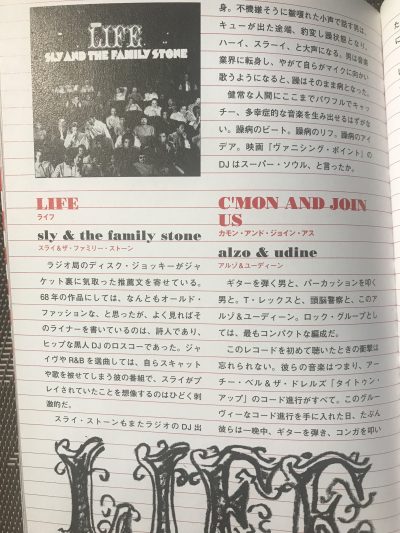 LIFE
SLY AND THE FAMILY STONE
LIFE
ライフ
sly & the family stone
スライ&ザ・ファミリー・ストーン
ラジオ局のディスク・ジョッキーがジャ
ケット裏に気取った推薦文を寄せている。
68年の作品にしては、なんともオールド・
ファッションな、と思ったが、よく見ればそ
のライナーを書いているのは、詩人であり、
ヒップな黒人DJのロスコーであった。ジャ
イヴやR&Bを選曲しては、自らスキャット
や歌を被せてしまう彼の番組で、スライがプ
レイされていたことを想像するのはひどく刺
激的だ。
スライ・ストーンもまたラジオのDJ出
身。不機嫌そうに皺嗄れた小声で話す男は、
キューが出た途端、豹変し躁状態となり、
ハーイ、スラーイ、と大声になる。男は音楽
業界に転身し、やがて自らがマイクに向かい
歌うようになると、躁はそのまま病となった。
健常な人間にここまでパワフルでキャッ
チー、多幸症的な音楽を生み出せるはずがな
い。躁病のビート。躁病のリフ。躁病のアイ
デア。映画『ヴァニシング・ポイント』の
DJはスーパー・ソウル、と言ったか。
C'MON AND JOIN
US
カモン・アンド・ジョイン・アス
alzo & udine
アルゾ&ユーディーン
ギターを弾く男と、パーカッションを叩く
男と。T・レックスと、頭脳警察と、このア
ルゾ&ユーディーン。ロック・グループとし
ては、最もコンパクトな編成だ。
このレコードを初めて聴いたときの衝撃は
忘れられない。彼らの音楽はつまり、アー
チー・ベル&ザ・ドレルズ「タイトゥン・
アップ」のコード進行がすべて。このグルー
ヴィーなコード進行を手に入れた日、たぶん
彼らは一晩中、ギターを弾き、コンガを叩い
LIFE